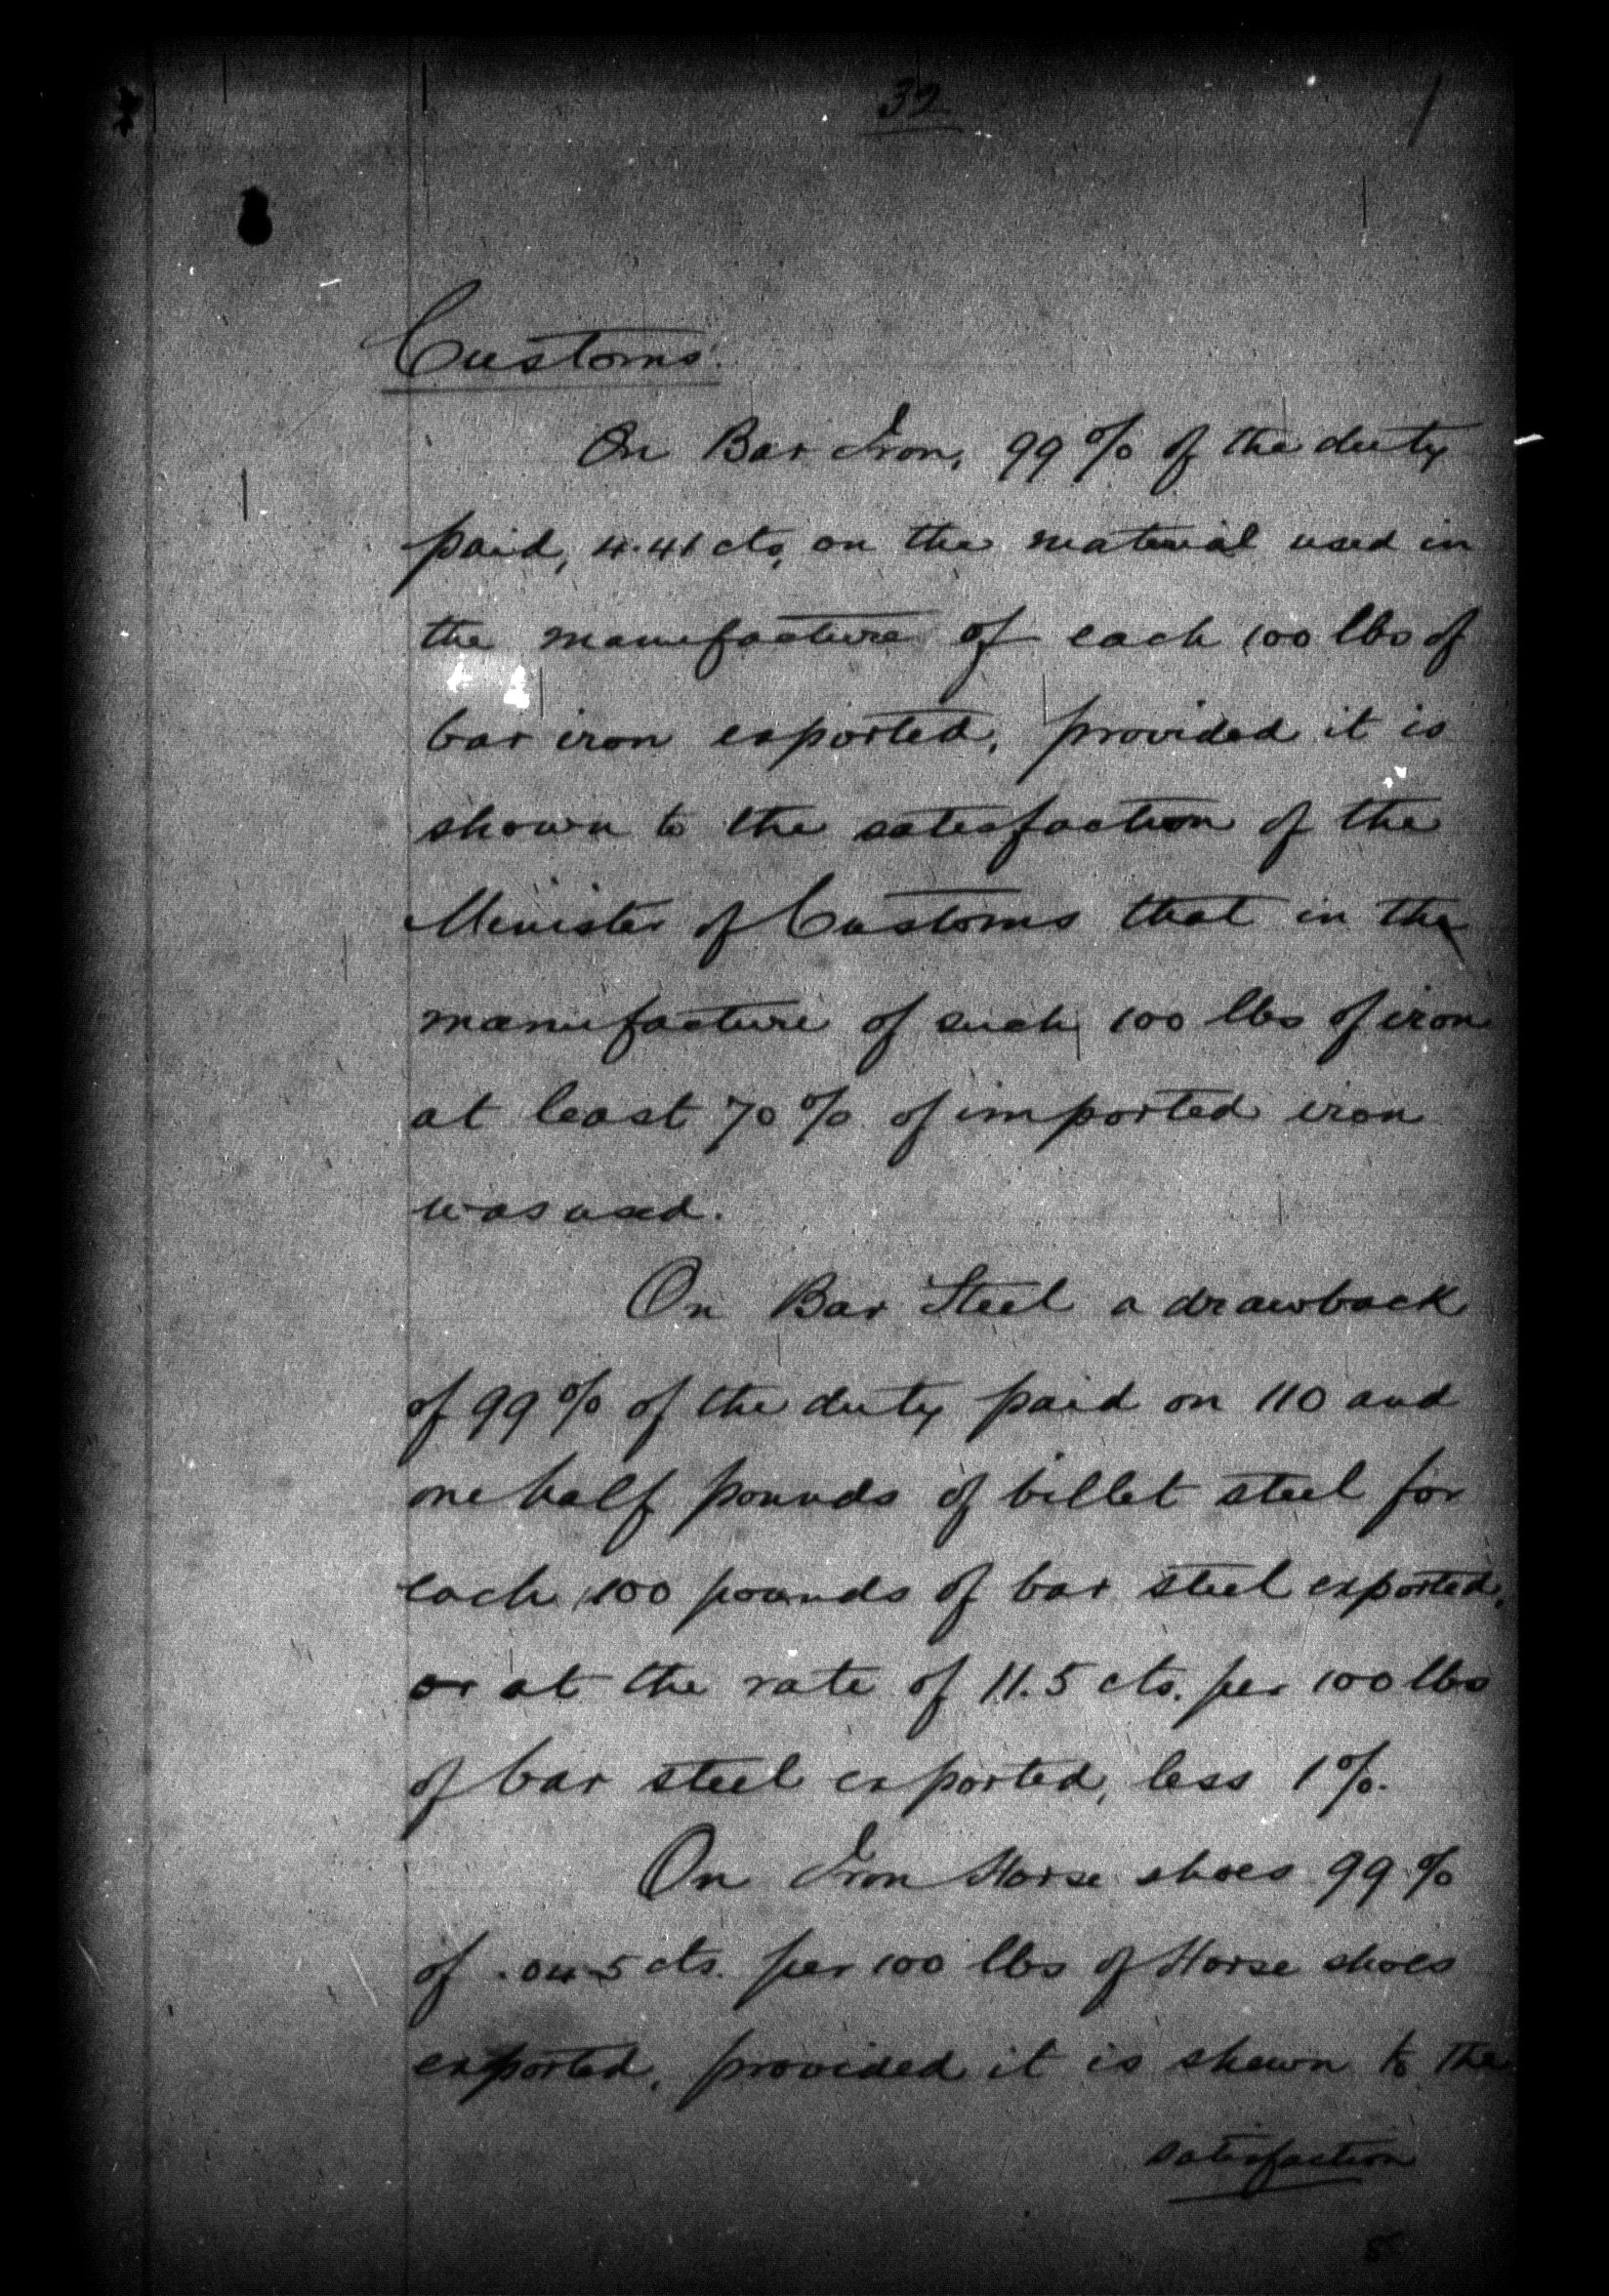 32
Customs.
On Bar Iron, 99 % of the duty
paid, 4.41 cts, on the material used in
the manufacture of each 100 lbs of
bar iron exported, provided it is
shown to the satisfaction of the
Minister of Customs that in the
manufacture of such 100 lbs of iron
at least 70 % of imported iron
was used.
On Bar Steel a drawback
of 99 % of the duty paid on 110 and
one half pounds of billet steel for
each 100 pounds of bar steel exported,
or at the rate of 11.5 cts. per 100 lbs
of bar steel exported, less 1 %.
On Iron Horse shoes 99 %
of .045 cts. per 100 lbs of Horse shoes
exported, provided it is shewn to the
satisfaction